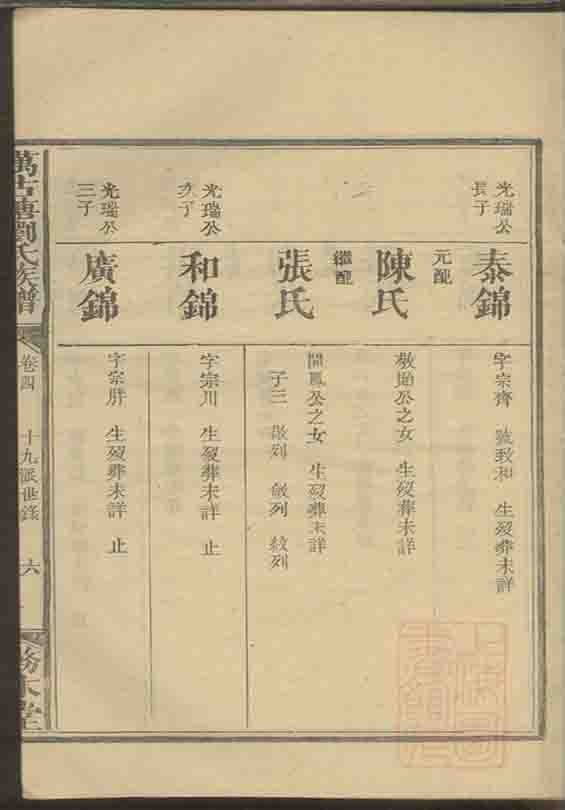 光瑞公
長子
泰錦
字宗齊 號致和 生歿葬未詳
元配
陳氏
敬貽公之女 生歿葬未詳
繼配
張氏
開鳳公之女 生歿葬未詳
子三 啟列 敏列 毅列
光瑞公
次子
和錦
字宗川 生歿葬未詳 止
光瑞公
三子
廣錦
字宗胖 生歿葬未詳 止
萬古塘劉氏族譜
卷四
十九派世錄
六
務本堂